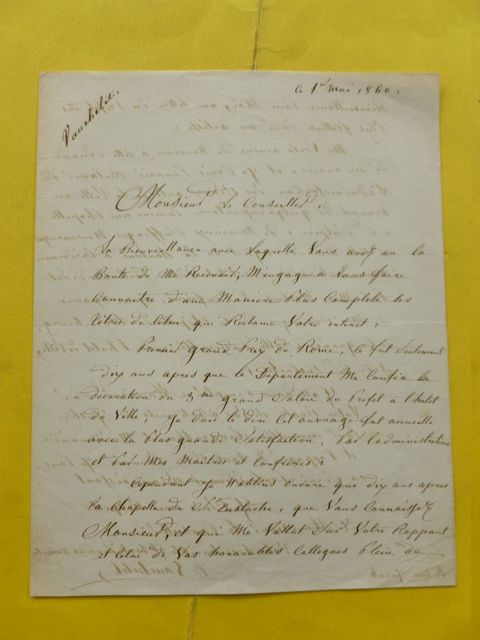 ce 1er mai 1860.
Vauchelet.
Monsieur Le Conseiller,
La Bienveillance avec Laquelle Vous avez eu la
Bonté de Me Recevoir, M'engage a Vous faire
Connaitre d'une Maniere Plus Complete les
titres de Celui qui Reclame Votre interet,
Premier Grand Prix de Rome, ce fut Seulement
dix ans apres que le Département Me Confia la
decoration du 3me grand Salon du Préfet a l'hotel
de Ville; je dois le dire Cet ouvrage fut accueilli
avec la Plus grande Satisfaction, Par l'administration
et Par Mes Maitres et Confreres;
Cependant Je N'obtins Encore que dix ans apres
la Chapelle de St Eustache, que Vous Connaissez
Monsieur, et qui Me Valut Sur Votre Rapport
et Celui de Vos honorables Collegues Plein de